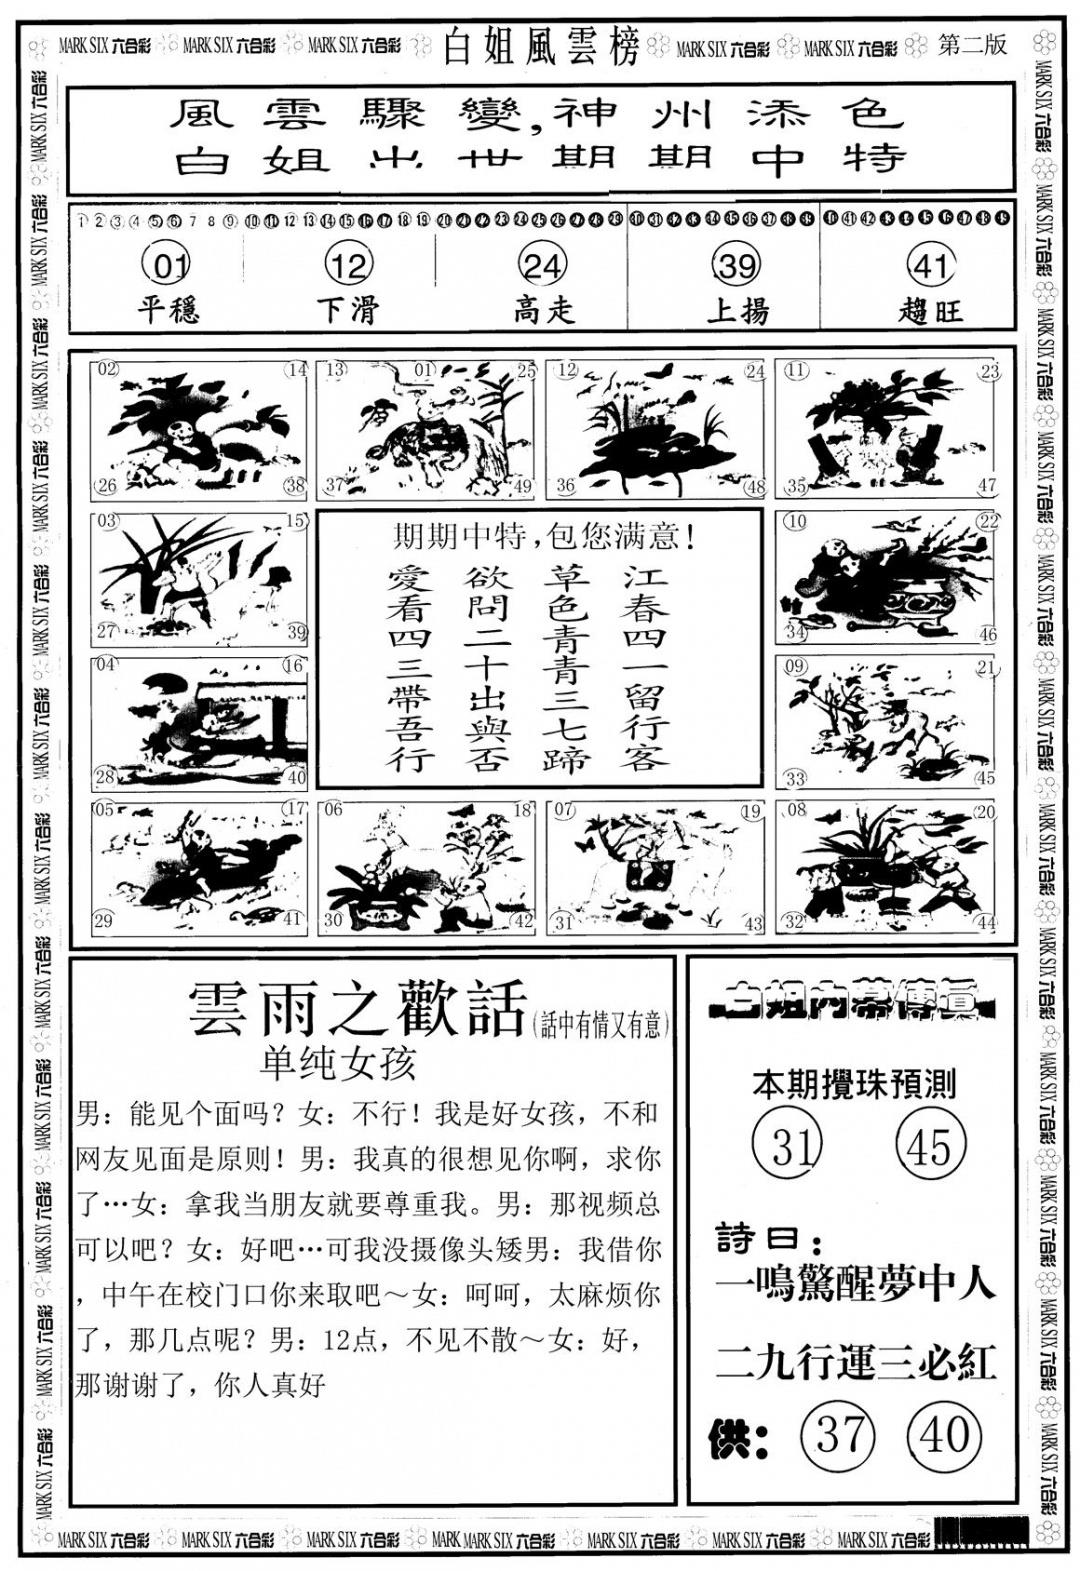 MARK SIX 六合彩 MARK SIX 六合彩 MARK SIX 六合彩 白姐風雲榜 MARK SIX 六合彩 MARK SIX 六合彩 第二版
風雲驟變,神州添色
白姐出世期期中特
1 2 3 4 5 6 7 8 9 10 11 12 13 14 15 16 17 18 19 20 21 22 23 24 25 26 27 28 29 30 31 32 33 34 35 36 37 38 39 40 41 42 43 44 45 46 47 48 49
01 12 24 39 41
平穩 下滑 高走 上揚 趨旺
02 14 13 01 25 12 24 11 23
26 38 37 49 36 48 35 47
03 15 10 22
27 39 34 46
04 16 09 21
28 40 33 45
05 17 06 18 07 19 08 20
29 41 30 42 31 43 32 44
期期中特,包您满意!
江春四一留行客
草色青青三七蹄
欲問二十出與否
愛看四三帶吾行
雲雨之歡話(話中有情又有意)
单纯女孩
男：能见个面吗？女：不行！我是好女孩，不和
网友见面是原则！男：我真的很想见你啊，求你
了…女：拿我当朋友就要尊重我。男：那视频总
可以吧？女：好吧…可我没摄像头矮男：我借你
，中午在校门口你来取吧～女：呵呵，太麻烦你
了，那几点呢？男：12点，不见不散～女：好，
那谢谢了，你人真好
白姐内幕傳真
本期攪珠預測
31 45
詩曰：
一鳴驚醒夢中人
二九行運三必紅
供：37 40
MARK SIX 六合彩 MARK SIX 六合彩 MARK SIX 六合彩 MARK MARK SIX 六合彩 MARK SIX 六合彩 MARK SIX 六合彩 MARK SIX 六合彩